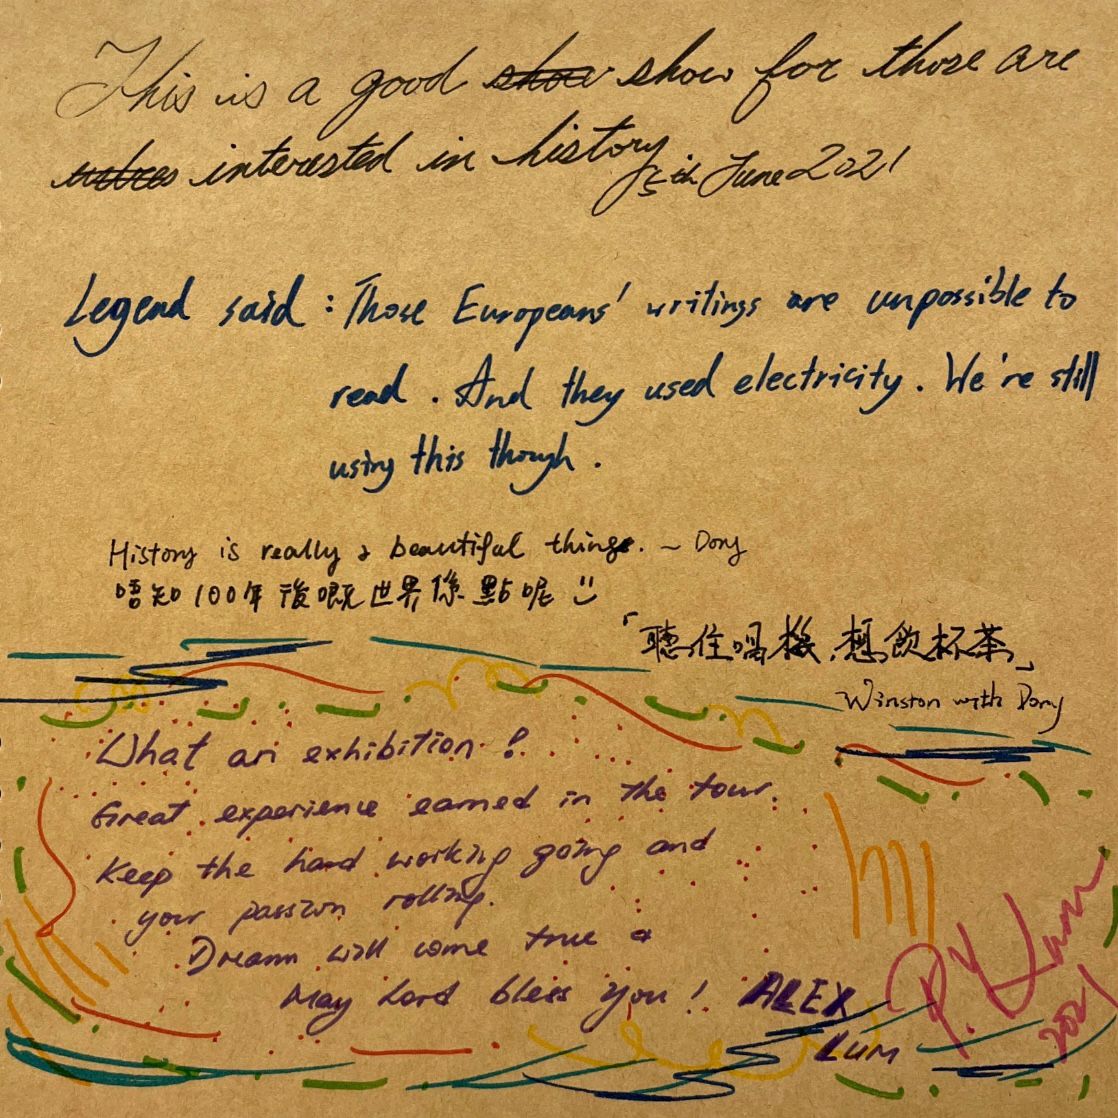 This is a good show show for those are
interested in history
5th June 2021
Legend said : Those Europeans' writings are unpossible to
read . And they used electricity . We're still
using this though .
History is really a beautiful things. ~ Dory
唔知100年後嘅世界係點呢
「聽住唱機,想飲杯茶」
Winston with Dory
What an exhibition !
Great experience earned in the tour.
Keep the hard working going and
your passion rolling.
Dream will come true &
May Lord bless you !
ALEX
LUM
P.Y Lum
2021